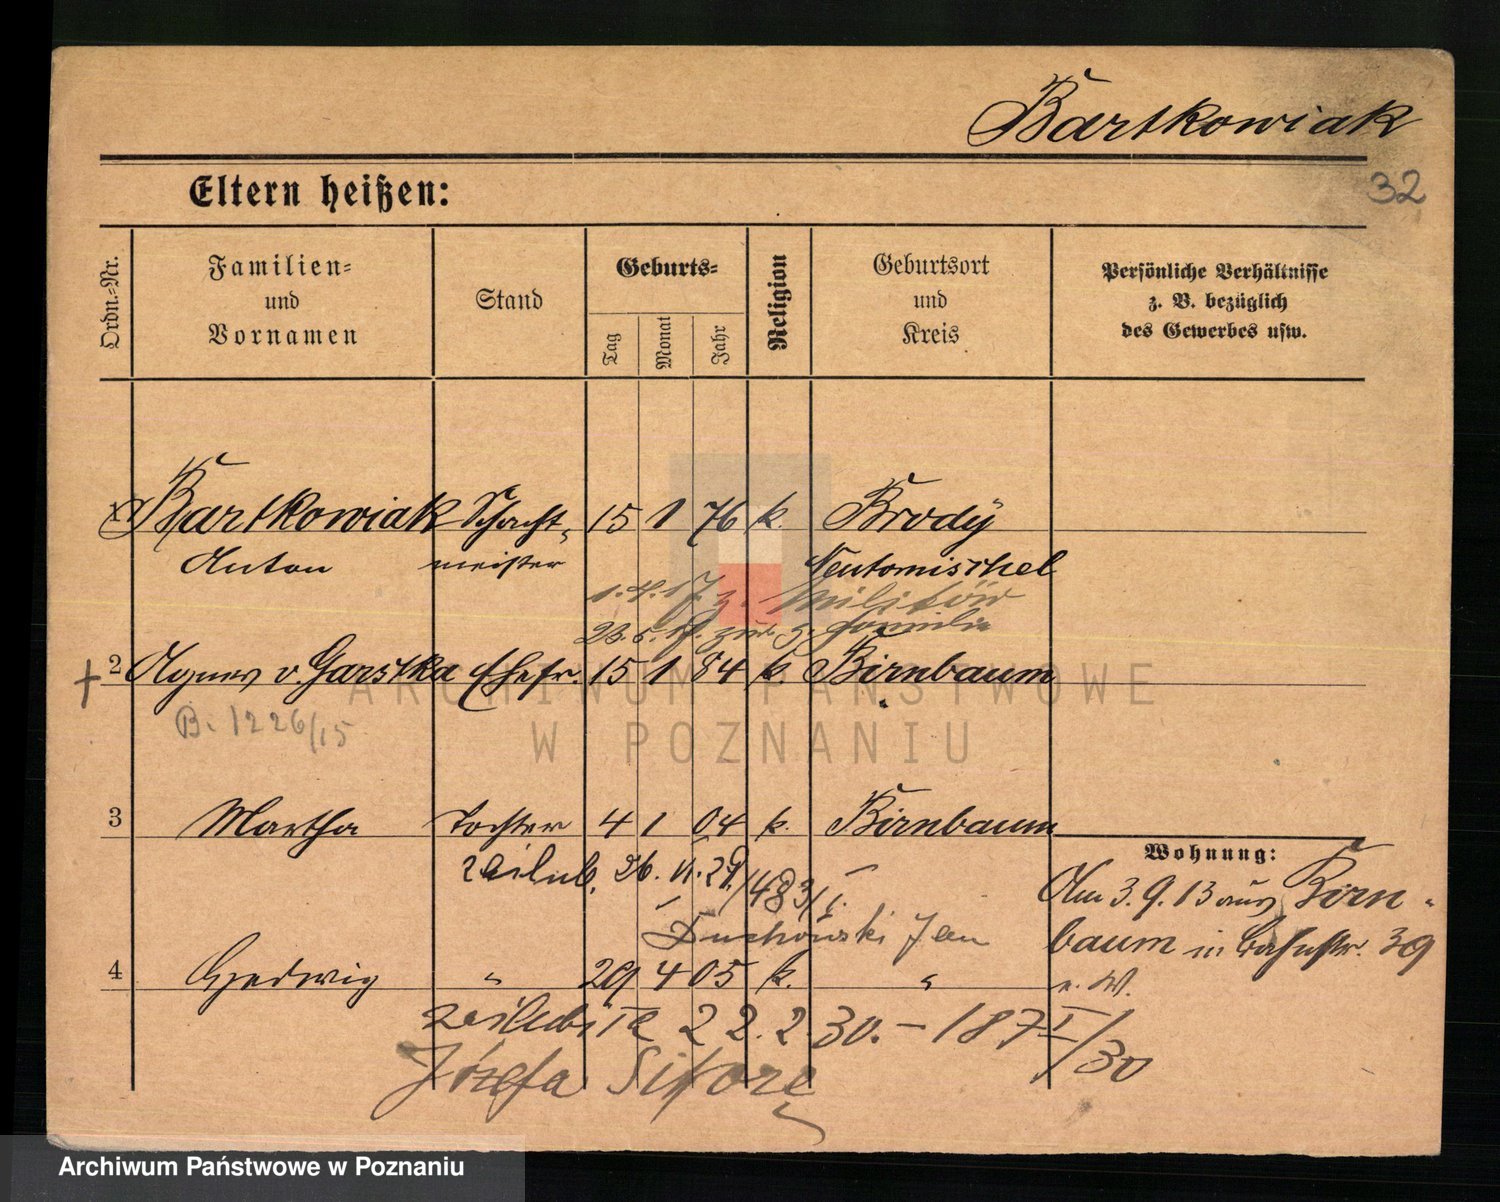 Bartkowiak
32
Eltern heißen:
Ordn.-Nr.
Familien-
und
Vornamen
Stand
Geburts-
Tag
Monat
Jahr
Religion
Geburtsort
und
Kreis
Persönliche Verhältnisse
z. B. bezüglich
des Gewerbes usw.
1 Bartkowiak Schacht- 15 1 76 k. Brody
Anton meister Neutomischel
1.4.17 z. Militär
23.5.17. zur. z. Familie
2 Agnes v. Garstka Ehefr. 15 1 84 k. Birnbaum
B. 1226/15
3 Martha Tochter 4 1 04 k. Birnbaum
26. VI. 29. /1483/I.
Duchowski Jan
4 Hedwig " 29 4 05 k. "
22.2.30. - 187 I/30
Józefa Sikorę
Wohnung:
Am 3.9.13 aus Birn-
baum in 39
ARCHIWUM PAŃSTWOWE
W POZNANIU
Archiwum Państwowe w Poznaniu